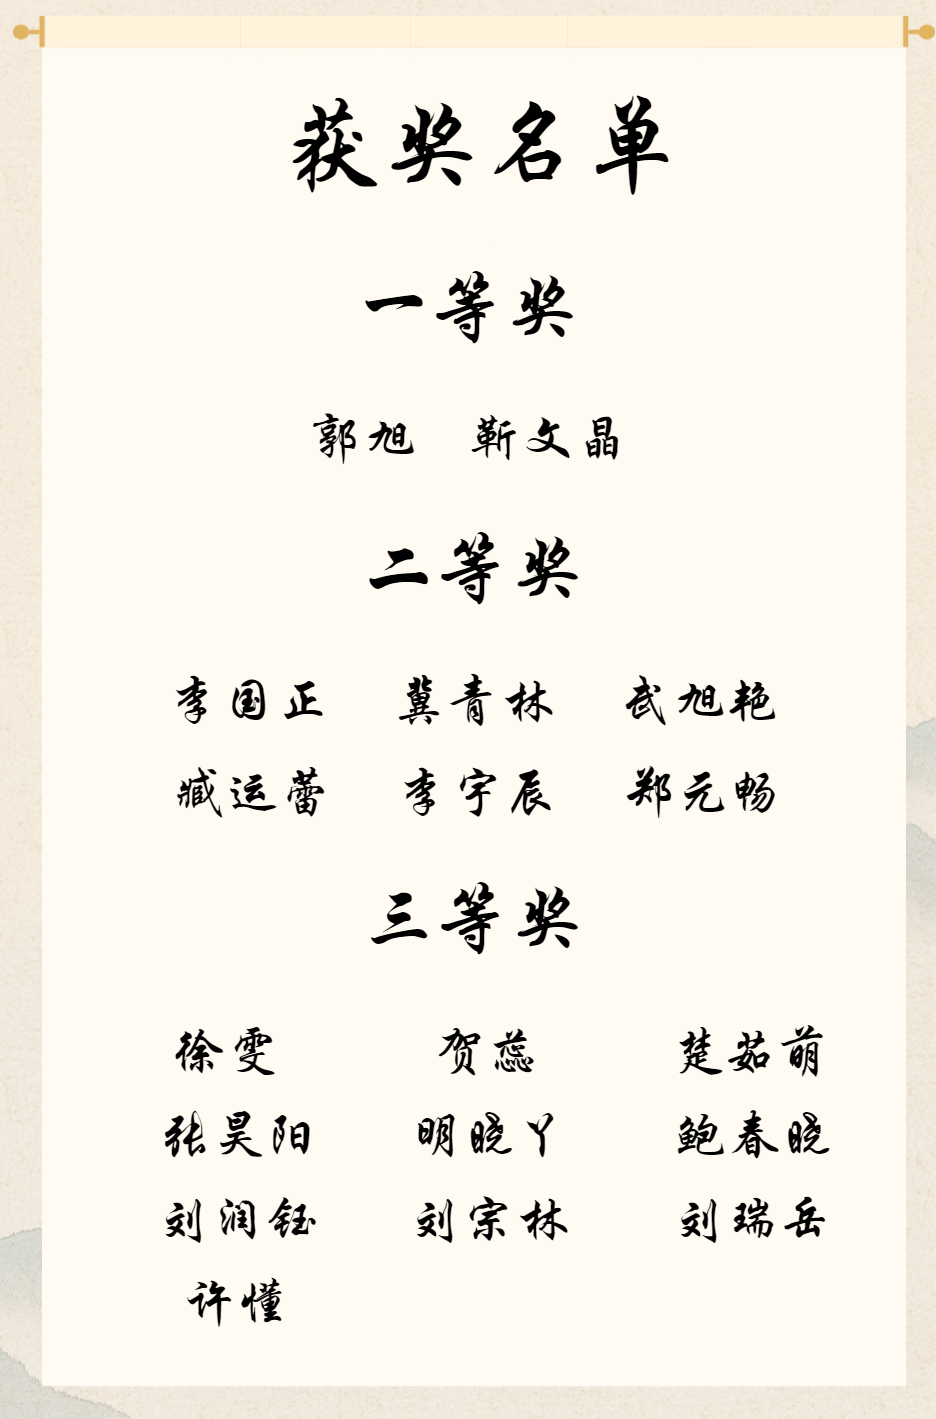 获奖名单
一等奖
郭旭 靳文晶
二等奖
李国正 冀青林 武旭艳
臧运蕾 李宇辰 郑元畅
三等奖
徐雯 贺蕊 楚茹萌
张昊阳 明晓丫 鲍春晓
刘润钰 刘宗林 刘瑞岳
许懂